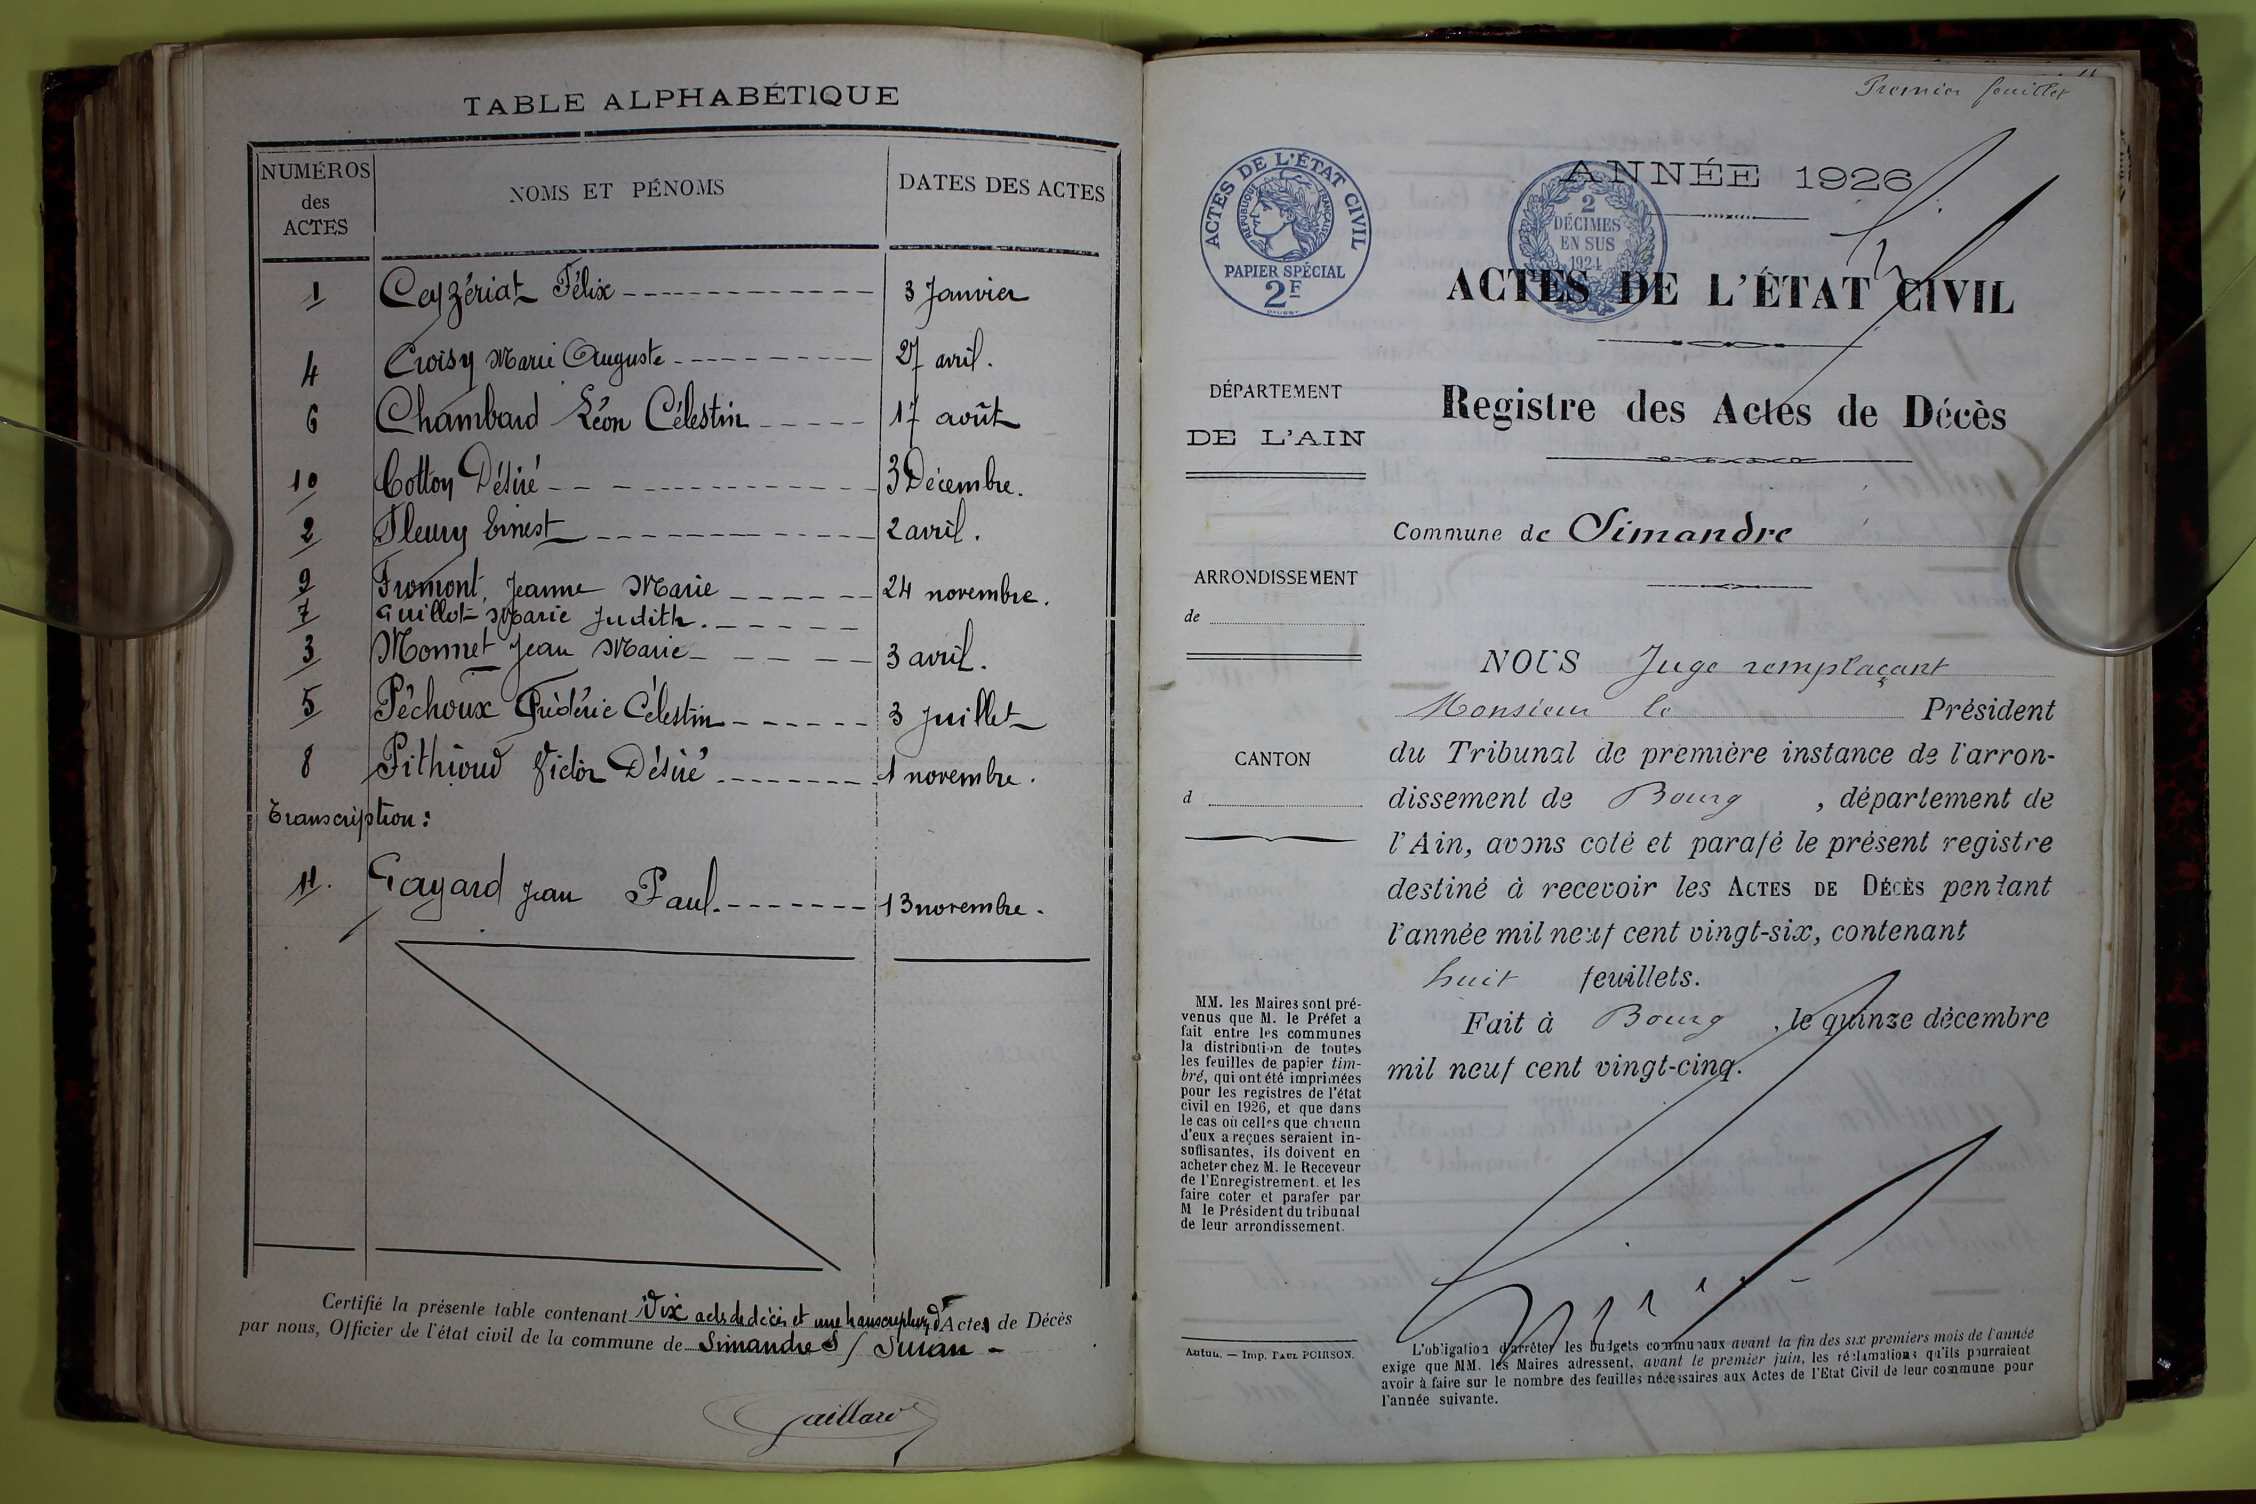 TABLE ALPHABÉTIQUE
NUMÉROS des ACTES
NOMS ET PÉNOMS
DATES DES ACTES
1 Ceyzériat Félix 3 Janvier
4 Croisy Marie Auguste 27 avril.
6 Chambard Léon Célestin 17 août
10 Cotton Désiré 3 Décembre.
2 Fleury Ernest 2 avril.
9 Fromont, Jeanne Marie 24 novembre.
7 Guillot Marie Judith.
3 Monnet Jean Marie 3 avril.
5 Péchoux Frédéric Célestin 3 Juillet
8 Pithioud Victor Désiré 1 novembre.
Transcription:
11. Gayard Jean Paul. 13 novembre.
Certifié la présente table contenant Dix acts de décès et une transcription d'Actes de Décès
par nous, Officier de l'état civil de la commune de Simandre S/ Suran
Gaillard
Premier feuillet
ACTES DE L'ÉTAT CIVIL
RÉPUBLIQUE FRANÇAISE
PAPIER SPÉCIAL
2F
2
DÉCIMES
EN SUS
1924
ANNÉE 1926
ACTES DE L'ÉTAT CIVIL
Registre des Actes de Décès
DÉPARTEMENT
DE L'AIN
Commune de Simandre
ARRONDISSEMENT
de
CANTON
d
NOUS Juge remplaçant
Monsieur le Président
du Tribunal de première instance de l'arron-
dissement de Bourg, département de
l'Ain, avons coté et parafé le présent registre
destiné à recevoir les ACTES DE DÉCÈS pendant
l'année mil neuf cent vingt-six, contenant
huit feuillets.
Fait à Bourg, le quinze décembre
mil neuf cent vingt-cinq.
MM. les Maires sont pré-
venus que M. le Préfet a
fait entre les communes
la distribution de toutes
les feuilles de papier tim-
bré, qui ont été imprimées
pour les registres de l'état
civil en 1926, et que dans
le cas où celles que chacun
d'eux a reçues seraient in-
suffisantes, ils doivent en
acheter chez M. le Receveur
de l'Enregistrement. et les
faire coter et parafer par
M le Président du tribunal
de leur arrondissement.
Autun. — Imp. PAUL POIRSON.
L'obligation d'arrêter les budgets communaux avant la fin des six premiers mois de l'année
exige que MM. les Maires adressent, avant le premier juin, les réclamations qu'ils pourraient
avoir à faire sur le nombre des feuilles nécessaires aux Actes de l'Etat Civil de leur commune pour
l'année suivante.